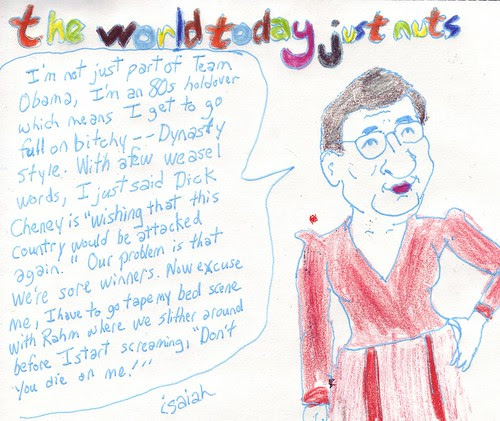 the world today just nuts
I'm not just part of Team
Obama, I'm an 80s holdover
which means I get to go
full on bitchy -- Dynasty
style. With a few weasel
words, I just said Dick
Cheney is "wishing that this
country would be attacked
again." Our problem is that
we're sore winners. Now excuse
me, I have to go tape my bed scene
with Rahm where we slither around
before I start screaming, "Don't
you die on me!"
isaiah